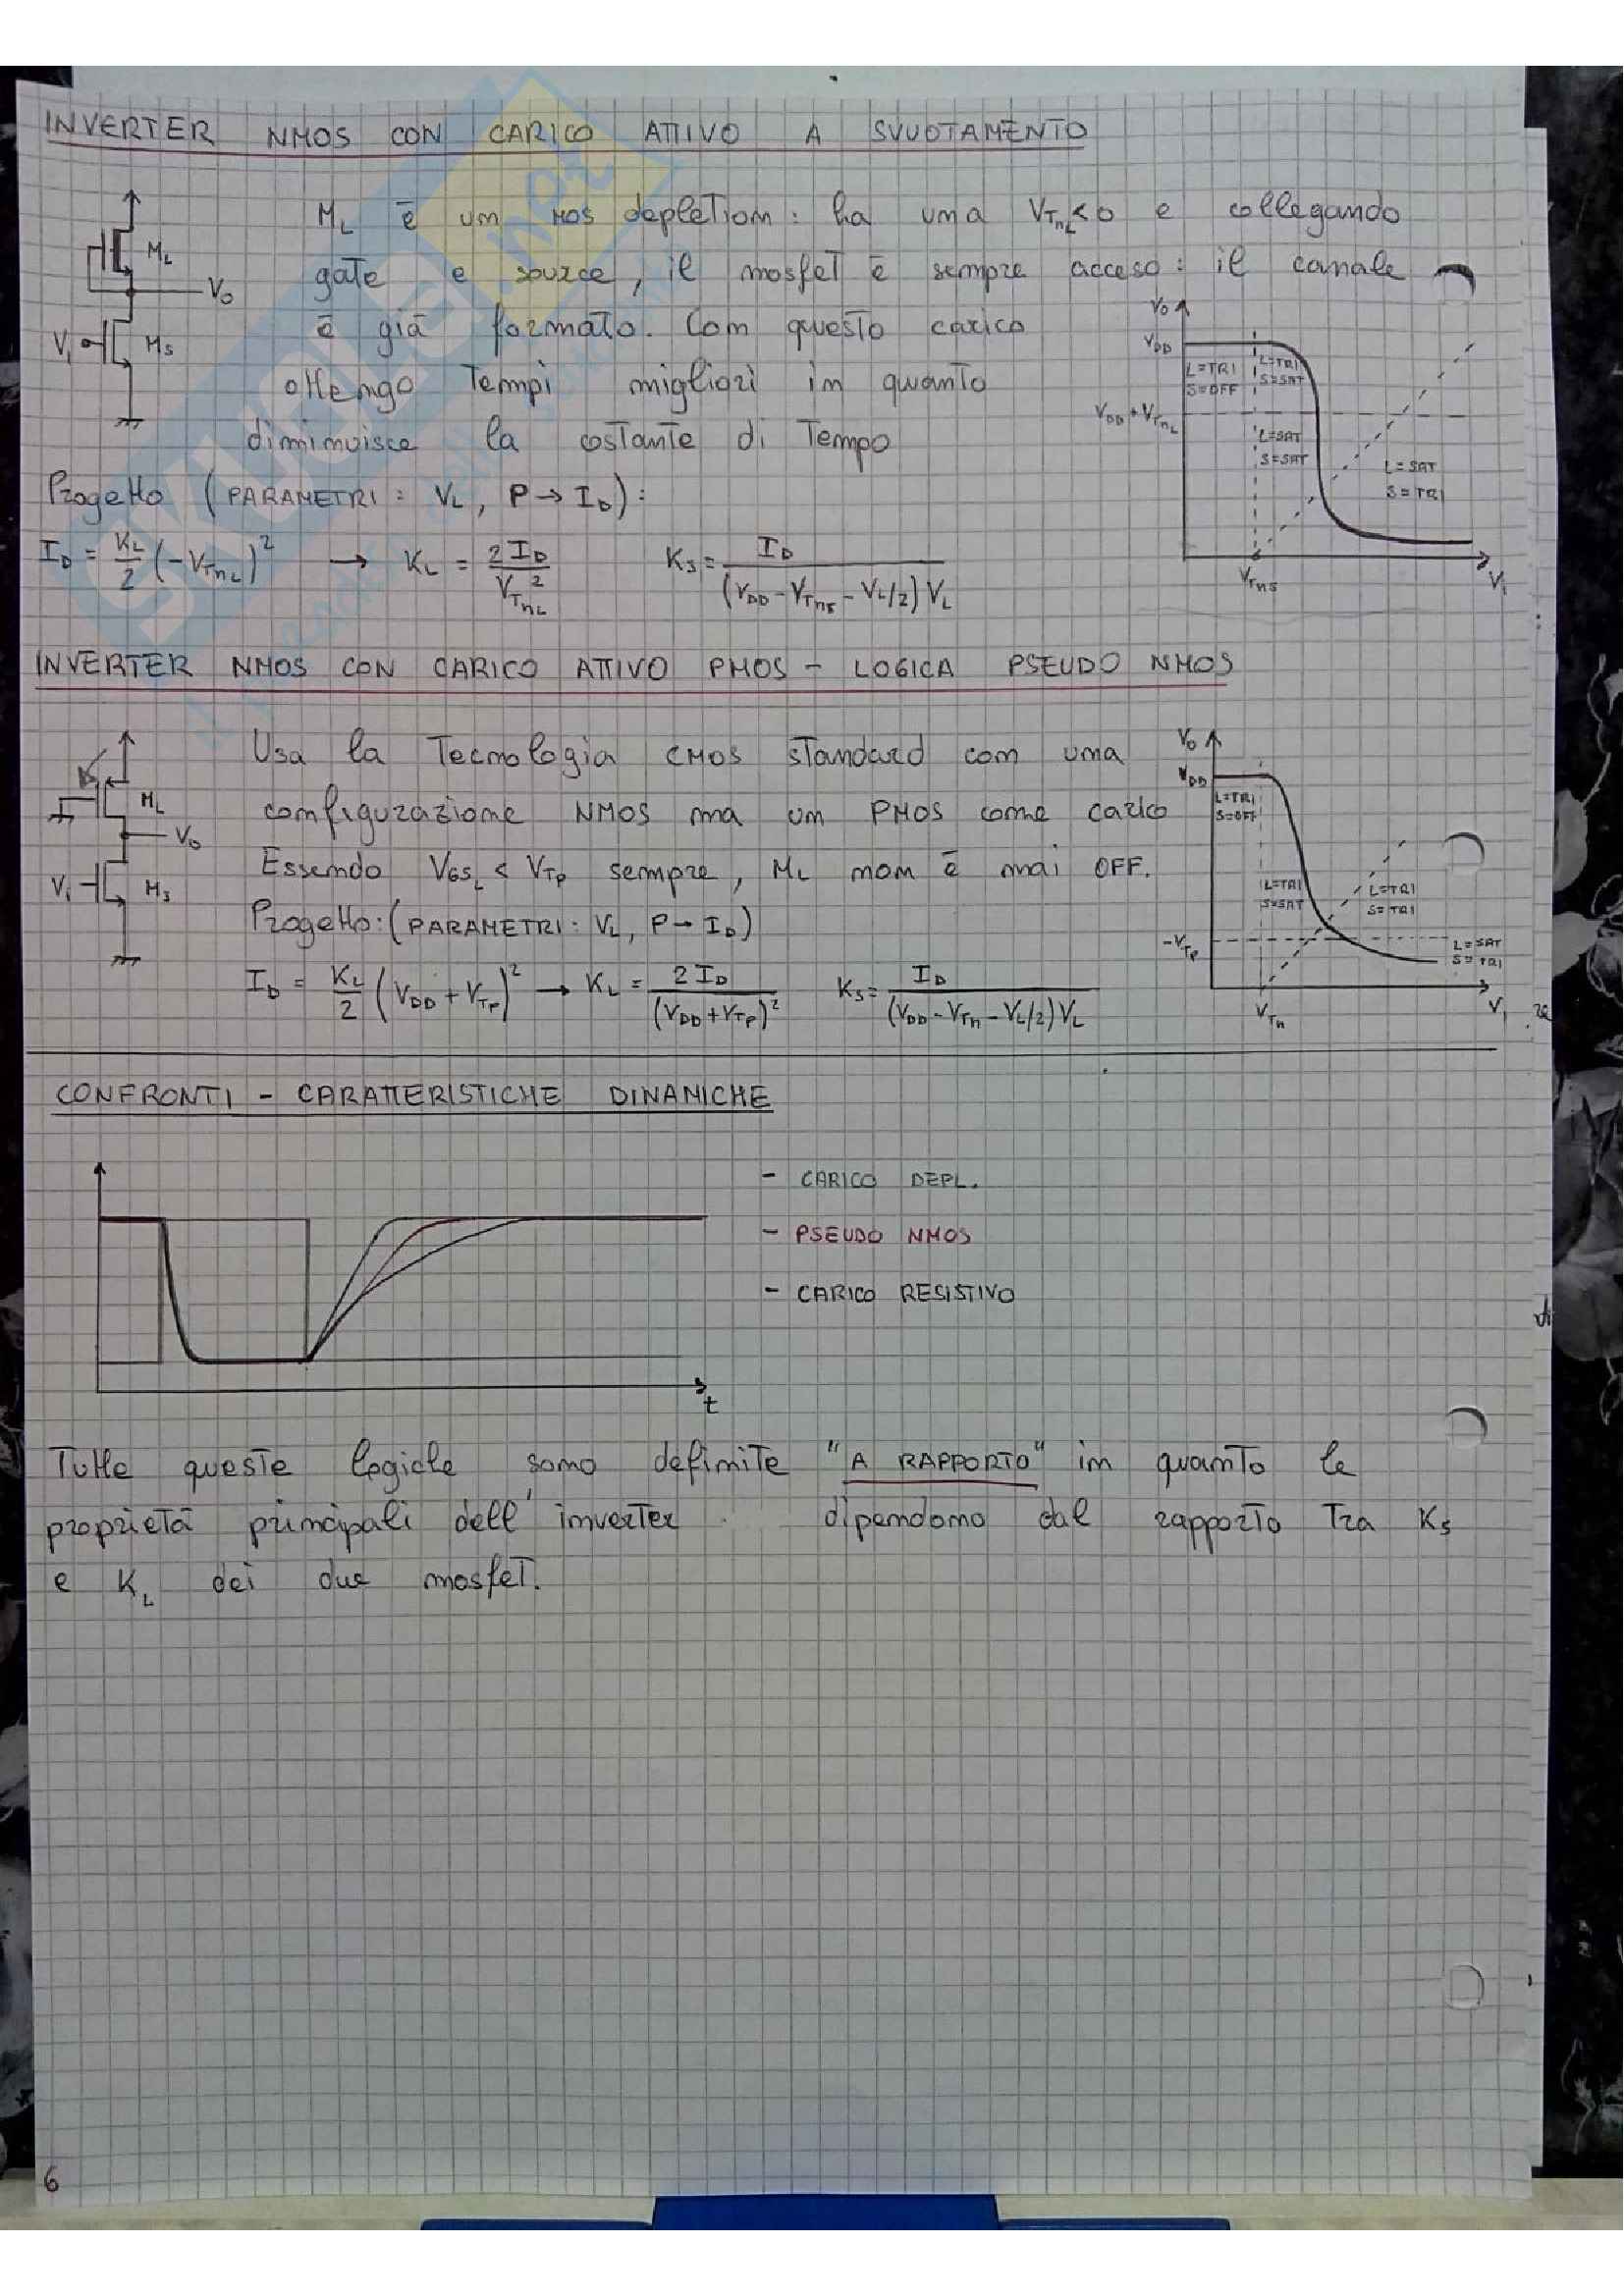 INVERTER NMOS CON CARICO ATTIVO A SVUOTAMENTO
ML è un MOS depletion: ha una VTnL<0 e collegando
gate e source, il mosfet è sempre acceso: il canale
è già formato. Con questo carico
ottengo tempi migliori in quanto
diminuisce la costante di tempo
ML
Vo
Vi
MS
Vo
VDD
L=TRI
S=OFF
L=TRI
S=SAT
VDD+VTnL
L=SAT
S=SAT
L=SAT
S=TRI
VTnS
Vi
Progetto (PARAMETRI: VL, P→ID):
ID = KL/2 (-VTnL)² → KL = 2ID/VTnL² KS = ID/(VDD-VTnS-VL/2)VL
INVERTER NMOS CON CARICO ATTIVO PMOS - LOGICA PSEUDO NMOS
Usa la tecnologia CMOS standard con una
configurazione NMOS ma un PMOS come carico
Essendo VGSL < VTp sempre, ML non è mai OFF.
Progetto: (PARAMETRI: VL, P→ID)
ID = KL/2 (VDD+VTp)² → KL = 2ID/(VDD+VTp)² KS = ID/(VDD-VTn-VL/2)VL
ML
Vo
Vi
MS
Vo
VDD
L=TRI
S=OFF
L=TRI
S=SAT
L=TRI
S=TRI
-VTp
L=SAT
S=TRI
VTn
Vi
CONFRONTI - CARATTERISTICHE DINAMICHE
- CARICO DEPL.
- PSEUDO NMOS
- CARICO RESISTIVO
t
Tutte queste logiche sono definite "A RAPPORTO" in quanto le
proprietà principali dell'inverter dipendono dal rapporto tra KS
e KL dei due mosfet.
6